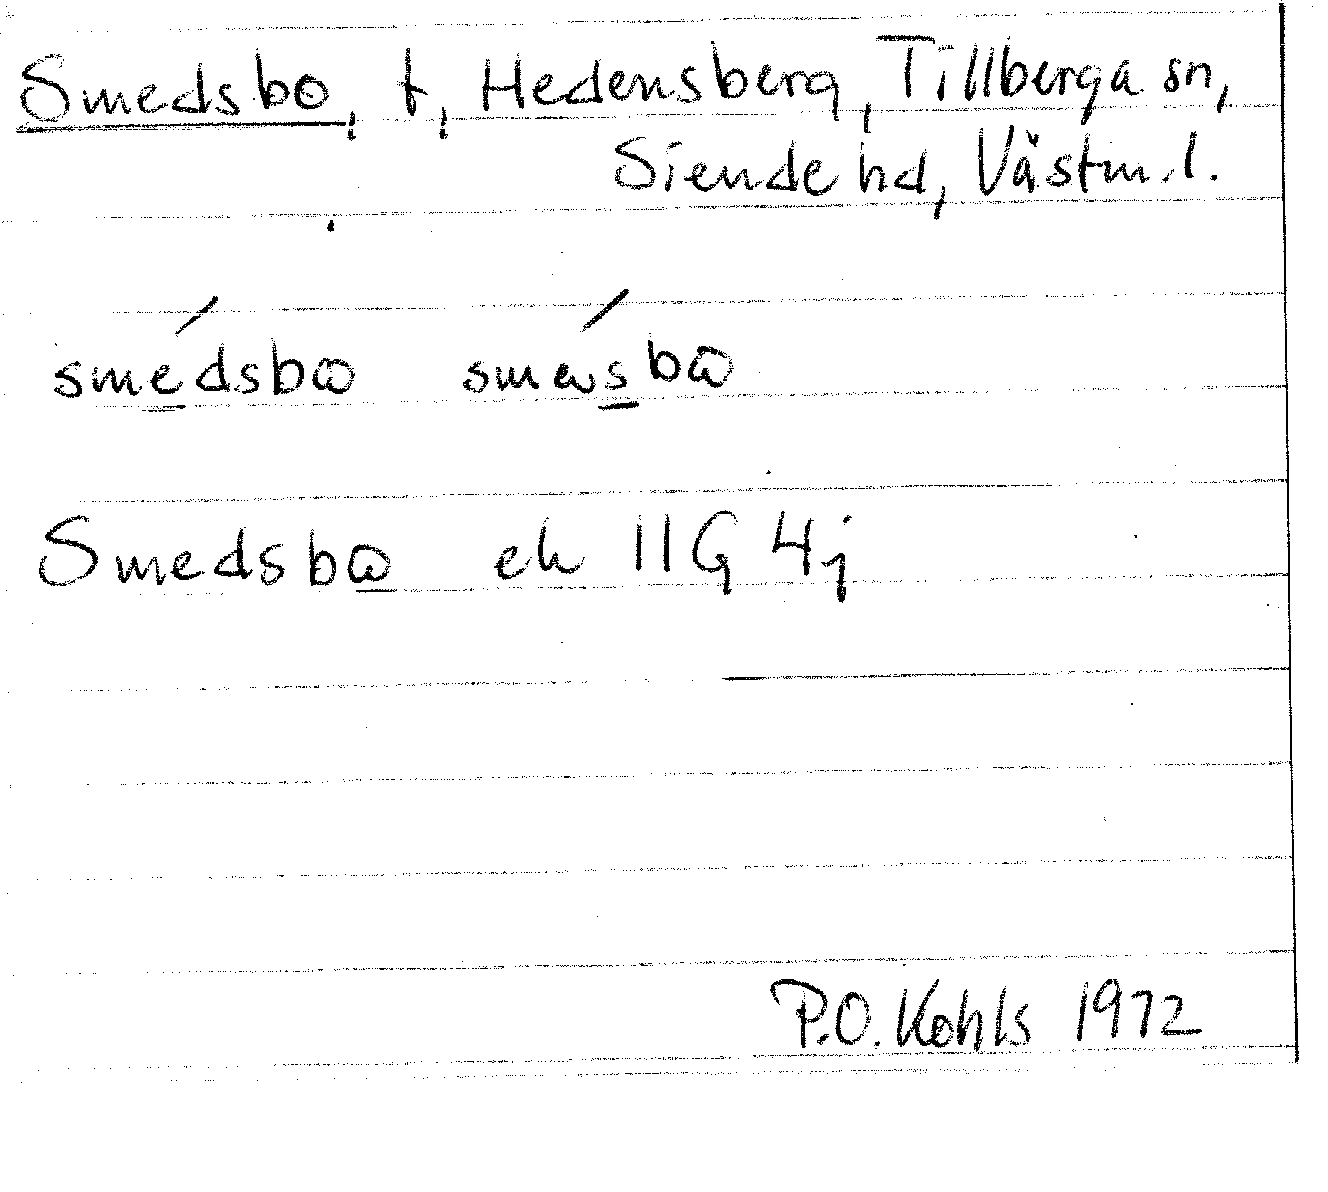 Smedsbo, t, Hedensberg, Tillberga sn,
Siende hd, Västm.l.
smédsbω smesbω
Smedsbω ek 11G 4j
P.O. Kohls 1972